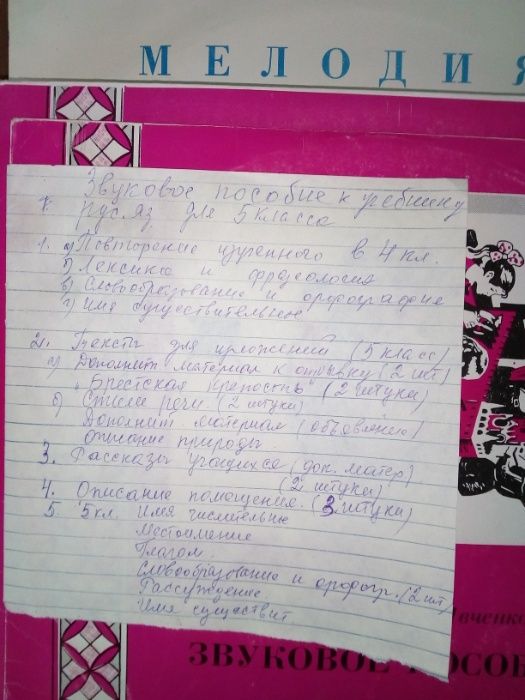 МЕЛОДИЯ
Звуковое пособие к учебнику
рус. яз. для 5 класса
1. а) Повторение изученного в 4 кл.
б) Лексика и фразеология
в) Словообразование и орфография
г) Имя существительное
2. Тексты для изложений (5 класс)
а) Дополнит материал к отрывку (2 шт)
„Брестская крепость" (2 штуки)
б) Стили речи (2 штуки)
Дополнит материал (объявление)
описание природы
3. Рассказы учащихся (доп. матер)
(2 штуки)
4. Описание помещения. (3 штуки)
5. 5 кл. Имя числительное
Местоимение
Глагол.
Словообразование и орфогр. (2 шт)
Рассуждение.
Имя существит
вченко
ЗВУКОВОЕ ПОСОБ